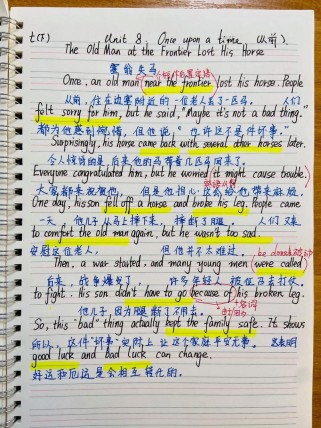 七(下) Unit 8 Once upon a time (从前)
The Old Man at the Frontier Lost His Horse
塞翁失马
Once, an old man near the frontier lost his horse. People
从前，住在边塞附近的一位老人丢了一匹马。 人们
felt sorry for him, but he said, "Maybe it's not a bad thing."
都为他感到惋惜，但他说，"也许这不是件坏事。"
Surprisingly, his horse came back with several other horses later.
令人惊讶的是，后来他的马带着几匹马回来了。
Everyone congratulated him, but he worried it might cause trouble.
大家都来祝贺他， 但是他担心这会给他带来麻烦
One day, his son fell off a horse and broke his leg. People came
一天， 他儿子从马上摔下来， 摔断了腿， 人们又来
to comfort the old man again, but he wasn't too sad.
安慰这位老人， 但他并不太难过。 be done 被动
Then, a war started, and many young men were called
后来， 战争爆发了， 许多年轻人 被征召去打仗。
to fight. His son didn't have to go because of his broken leg.
他儿子 因为腿断了不用去。
So, this "bad" thing actually kept the family safe. It shows
所以， 这件"坏事"实际上 让这个家庭平安无事。 这表明
good luck and bad luck can change.
好运和厄运是会相互转化的。